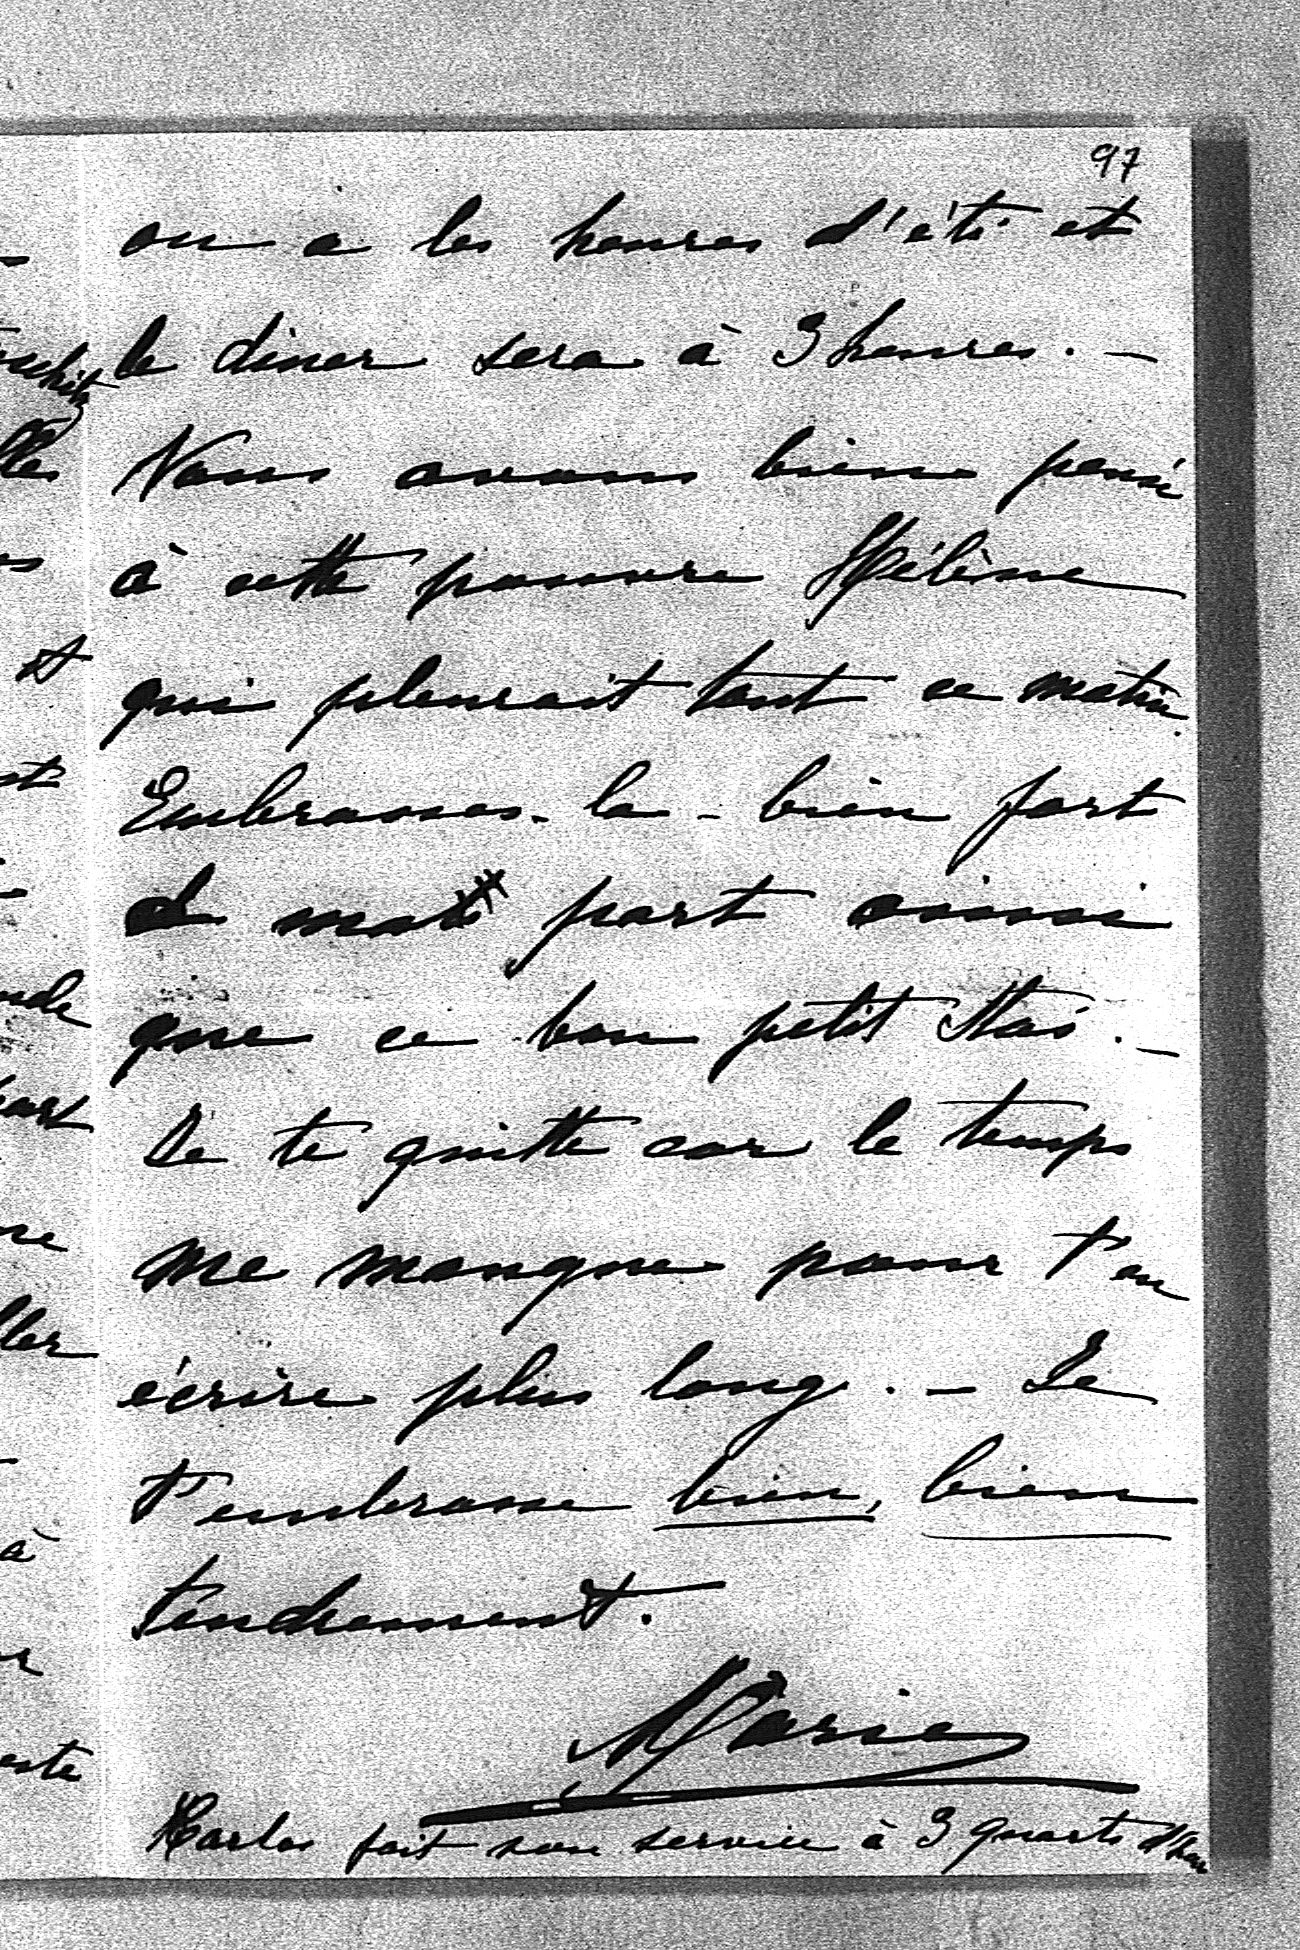 97
on a les heures d'été et
le diner sera à 3 heures. —
Nous avons bien pensé
à cette pauvre Hélène
qui pleurait tant ce matin.
Embrasses-la-bien fort
de ma part ainsi
que ce bon petit Stas. —
Je te quitte car le temps
me manque pour t'en
écrire plus long. — Je
t'embrasse bien, bien
tendrement.
Marie
Carlos fait son service à 3 quarts d'heu